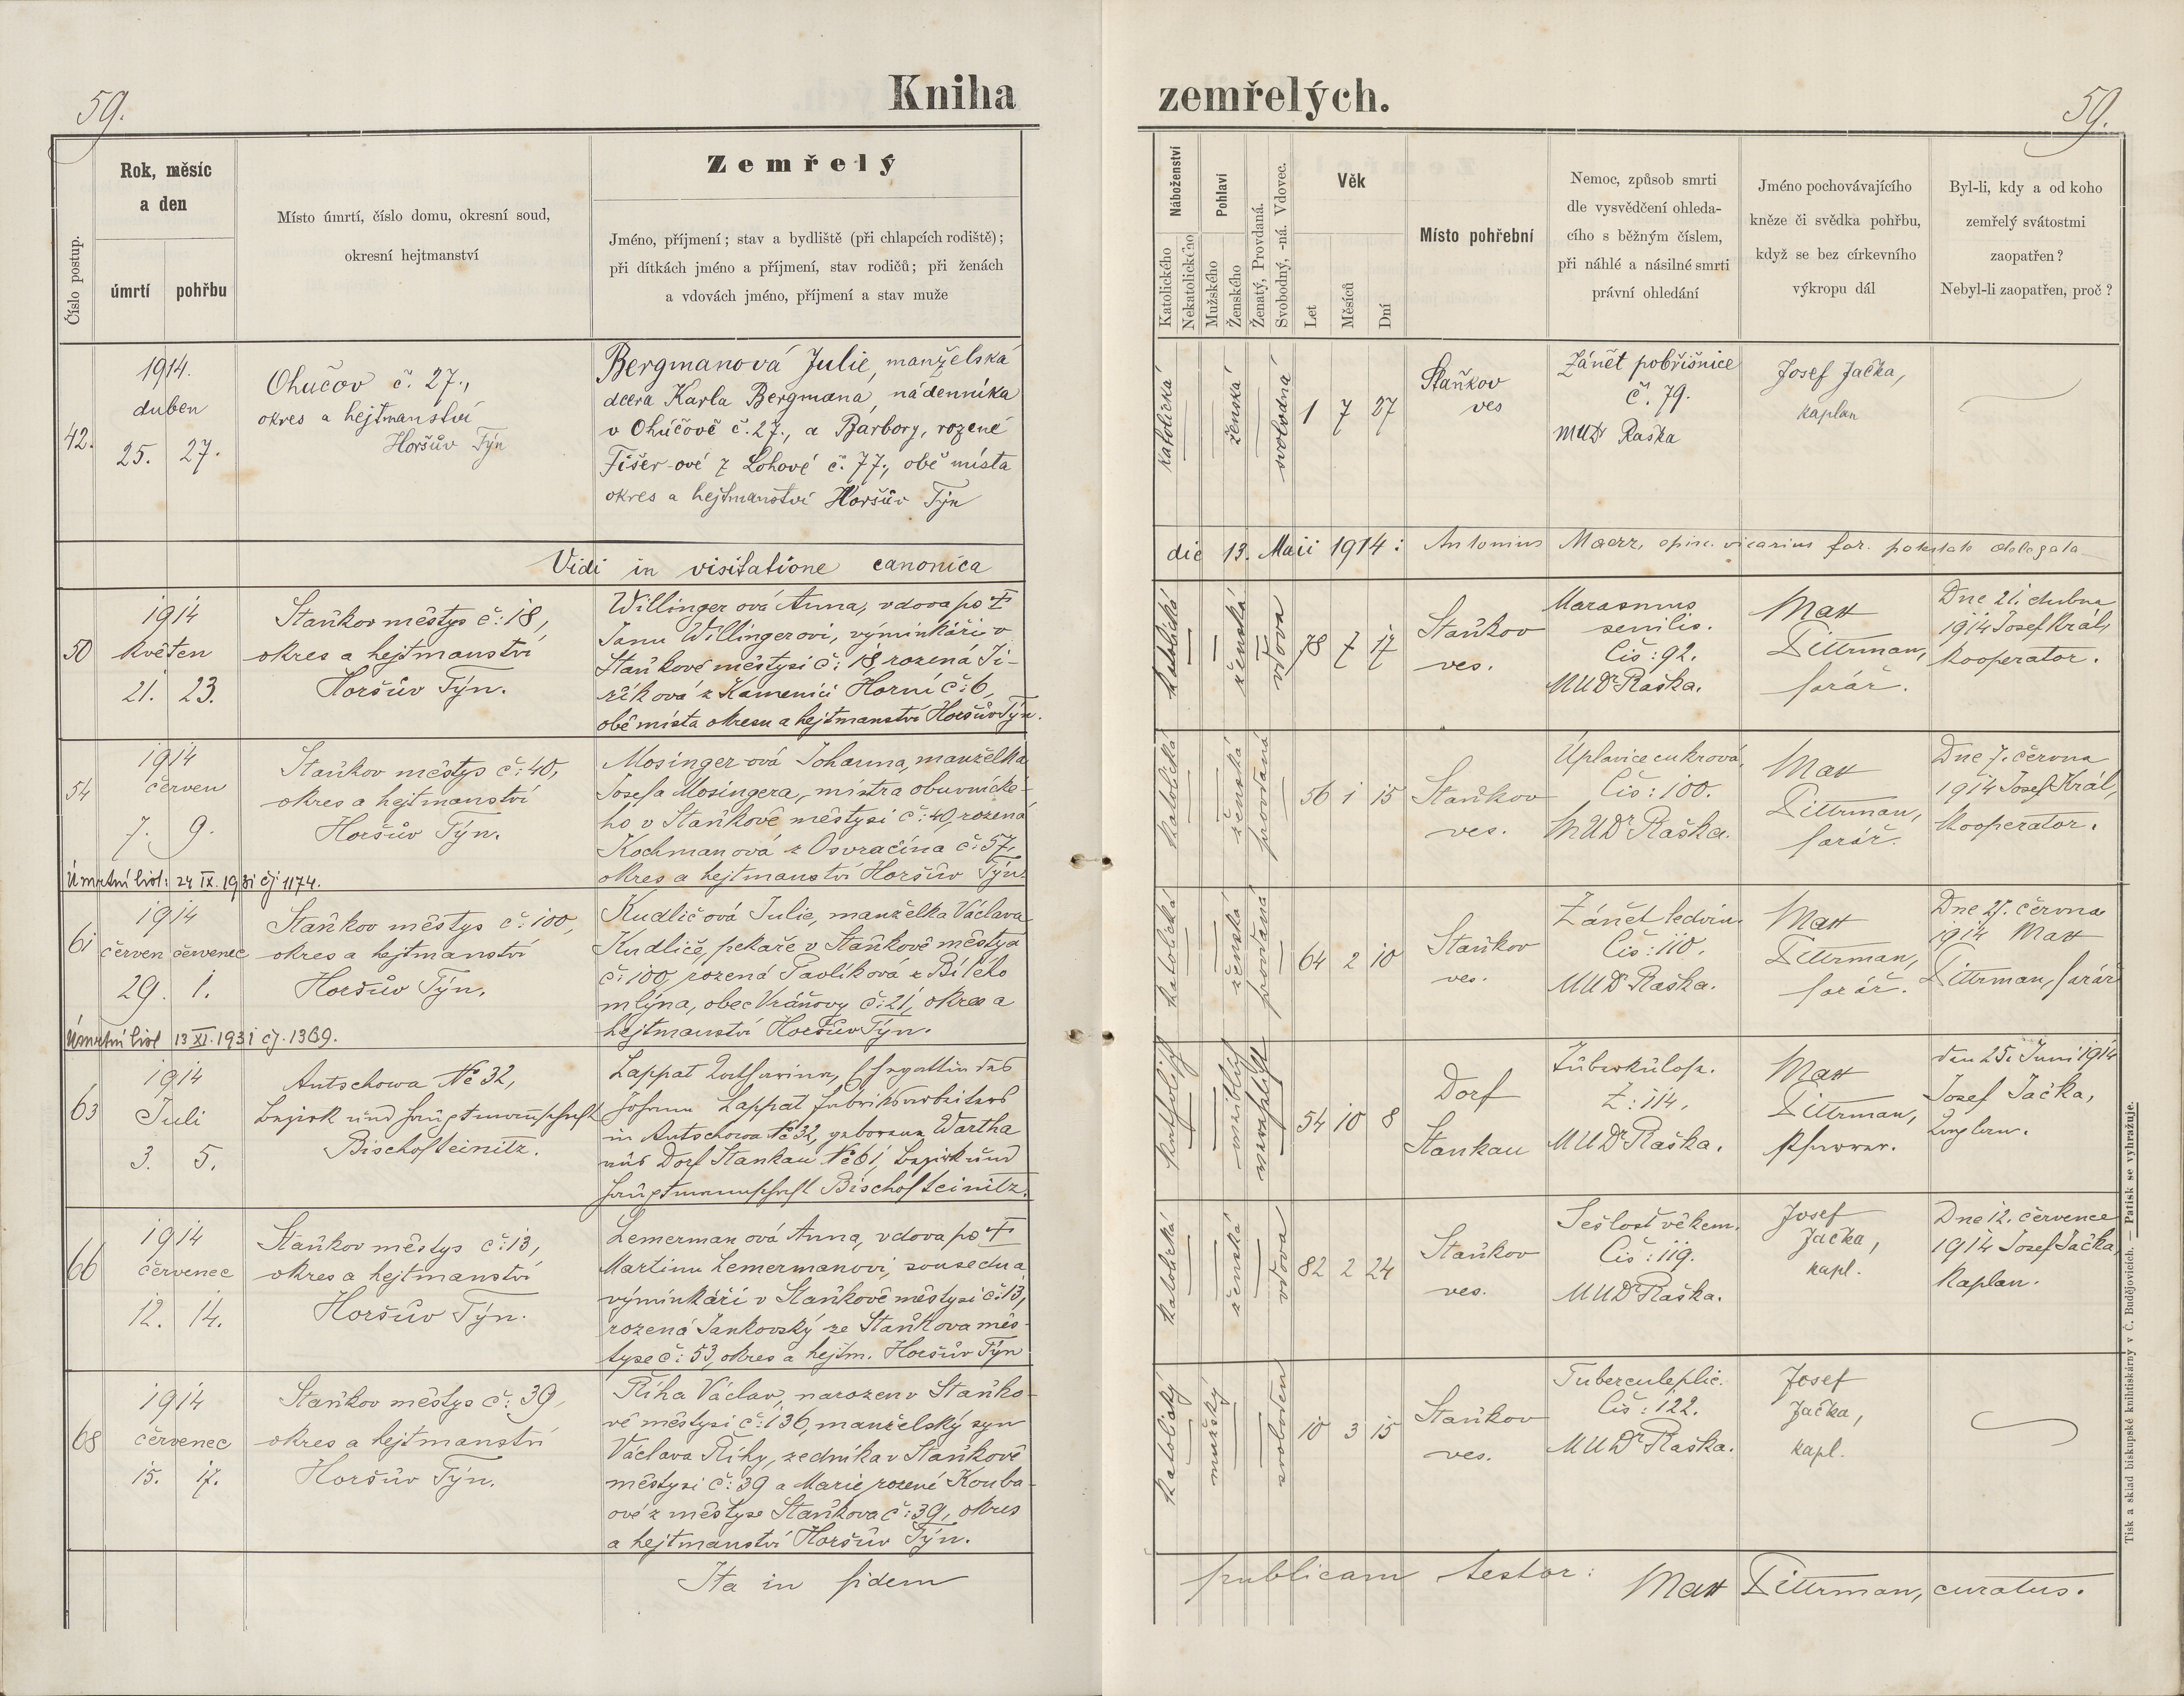 59.
Kniha
Číslo postup.
Rok, měsíc
a den
úmrtí
pohřbu
Místo úmrtí, číslo domu, okresní soud,
okresní hejtmanství
Zemřelý
Jméno, příjmení; stav a bydliště (při chlapcích rodiště);
při dítkách jméno a příjmení, stav rodičů; při ženách
a vdovách jméno, příjmení a stav muže
42.
1914.
duben
25. 27.
Ohučov č. 27.,
okres a hejtmanství
Horšův Týn
Bergmanová Julie, manželská
dcera Karla Bergmana, nádenníka
v Ohučově č. 27., a Barbory, rozené
Fišer-ové z Lohové č. 77., obě místa
okres a hejtmanství Horšův Týn
Vidi in visitatione canonica
50
1914
květen
21. 23.
Staňkov městys č: 18,
okres a hejtmanství
Horšův Týn.
Willinger ová Anna, vdova po †
Janu Willingerovi, výminkáři v
Staňkově městysi č: 18, rozená Ji-
říková z Kamenici Horní č: 6,
obě místa okresu a hejtmanství Horšův Týn.
54
1914
červen
7. 9.
Staňkov městys č: 40,
okres a hejtmanství
Horšův Týn.
Mosinger-ová Johanna, manželka
Josefa Mosingera, mistra obuvnické-
ho v Staňkově městysi č: 40, rozená
Kochmanová z Osvračína č: 57,
okres a hejtmanství Horšův Týn.
Úmrtní list: 24 IX. 1931 čj 1174.
61
1914
červen červenec
29. 1.
Staňkov městys č: 100,
okres a hejtmanství
Horšův Týn.
Kudličová Julie, manželka Václava
Kudliče, pekaře v Staňkově městys
č: 100, rozená Pavlíková z Bílého
mlýna, obec Vránovy č: 21, okres a
hejtmanství Horšův Týn.
Úmrtní list 13 XI. 1931 čj. 1369.
63
1914
Juli
3. 5.
Autschowa No 32,
Bezirk und Hauptmannschaft
Bischofteinitz.
Lappat Katharina, Ehegattin des
Johann Lappat Fabriksarbeiters
in Autschowa No 32, geborene Wartha
aus Dorf Stankau No 61, Bezirk und
Hauptmannschaft Bischofteinitz.
66
1914
červenec
12. 14.
Staňkov městys č: 13,
okres a hejtmanství
Horšův Týn.
Lemerman ová Anna, vdova po †
Martinu Lemermanovi, sousedu a
výminkáři v Staňkově městysi č: 13,
rozená Jankovský ze Staňkova měs-
tyse č: 53, okres a hejtm. Horšův Týn
68
1914
červenec
15. 17.
Staňkov městys č: 39,
okres a hejtmanství
Horšův Týn.
Říha Václav, narozen v Staňko-
vě městysi č: 136, manželský syn
Václava Říhy, zedníka v Staňkově
městysi č: 39 a Marie rozené Kouba-
ové z městyse Staňkova č: 39, okres
a hejtmanství Horšův Týn.
Ita in fidem
zemřelých.
59.
Náboženství
Katolického
Nekatolického
Pohlaví
Mužského
Ženského
Ženatý, Provdaná.
Svobodný, -ná. Vdovec.
Věk
Let
Měsíců
Dní
Místo pohřební
Nemoc, způsob smrti
dle vysvědčení ohleda-
cího s běžným číslem,
při náhlé a násilné smrti
právní ohledání
Jméno pochovávajícího
kněze či svědka pohřbu,
když se bez církevního
výkropu dál
Byl-li, kdy a od koho
zemřelý svátostmi
zaopatřen?
Nebyl-li zaopatřen, proč?
katolická
ženská
svobodná
1 7 27
Staňkov
ves
Zánět pobřišnice
č. 79.
MUDr Raška
Josef Jačka,
kaplan
die 13. Maii 1914: Antonius Maerz, episc. vicarius for. potestate delegata
katolická
ženská
vdova
78 7 17
Staňkov
ves.
Marasmus
senilis.
Čís: 92.
MUDr Raška.
Max
Dittrman,
farář.
Dne 21. dubna
1914 Josef Král,
kooperator.
katolická
ženská
provdaná
56 1 15
Staňkov
ves.
Úplavice cukrová,
Čís: 100.
MUDr Raška.
Max
Dittrman,
farář.
Dne 7. června
1914 Josef Král,
kooperator.
katolická
ženská
provdaná
64 2 10
Staňkov
ves.
Zánět ledvin.
Čís: 110.
MUDr Raška.
Max
Dittrman,
farář.
Dne 27. června
1914 Max
Dittrman, farář
katholisch
weiblich
verehelichte
54 10 8
Dorf
Stankau
Tuberkulose.
Z: 114.
MUDr Raška.
Max
Dittrman,
Pfarrer.
den 25. Juni 1914
Josef Jačka,
Kaplan.
katolická
ženská
vdova
82 2 24
Staňkov
ves.
Sešlost věkem.
Čís: 119.
MUDr Raška.
Josef
Jačka,
kapl.
Dne 12. července
1914 Josef Jačka,
kaplan.
katolický
mužský
svoboden
10 3 15
Staňkov
ves.
Tubercul. plic.
Čís: 122.
MUDr Raška.
Josef
Jačka,
kapl.
publicam testor: Max Dittrman, curatus.
Tisk a sklad biskupské knihtiskárny v Č. Budějovicích. — Patisk se vyhražuje.